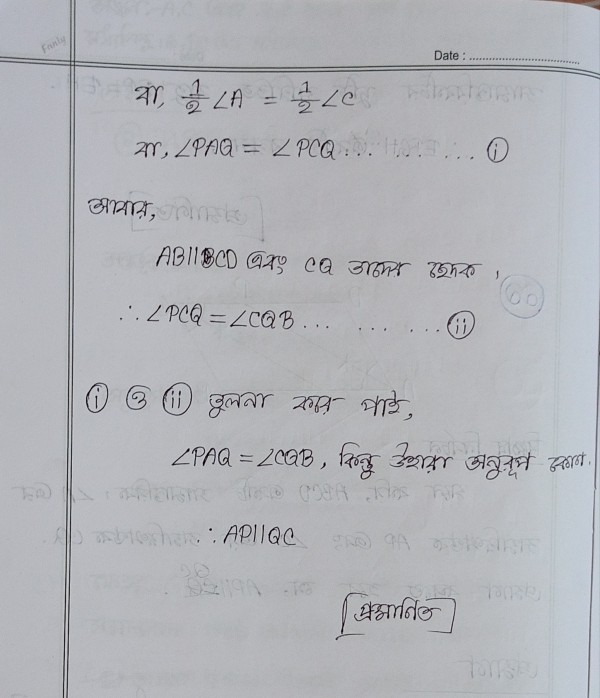 Family
Date :
বা, 1/2 ∠A = 1/2 ∠C
বা, ∠PAQ = ∠PCQ ... ... ... (i)
আবার,
AB||CD এবং CQ তাদের ছেদক ,
∴ ∠PCQ = ∠CQB ... ... ... (ii)
(i) ও (ii) তুলনা করে পাই,
∠PAQ = ∠CQB, কিন্তু উহারা অনুরূপ কোণ.
∴ AP||QC
[প্রমাণিত]